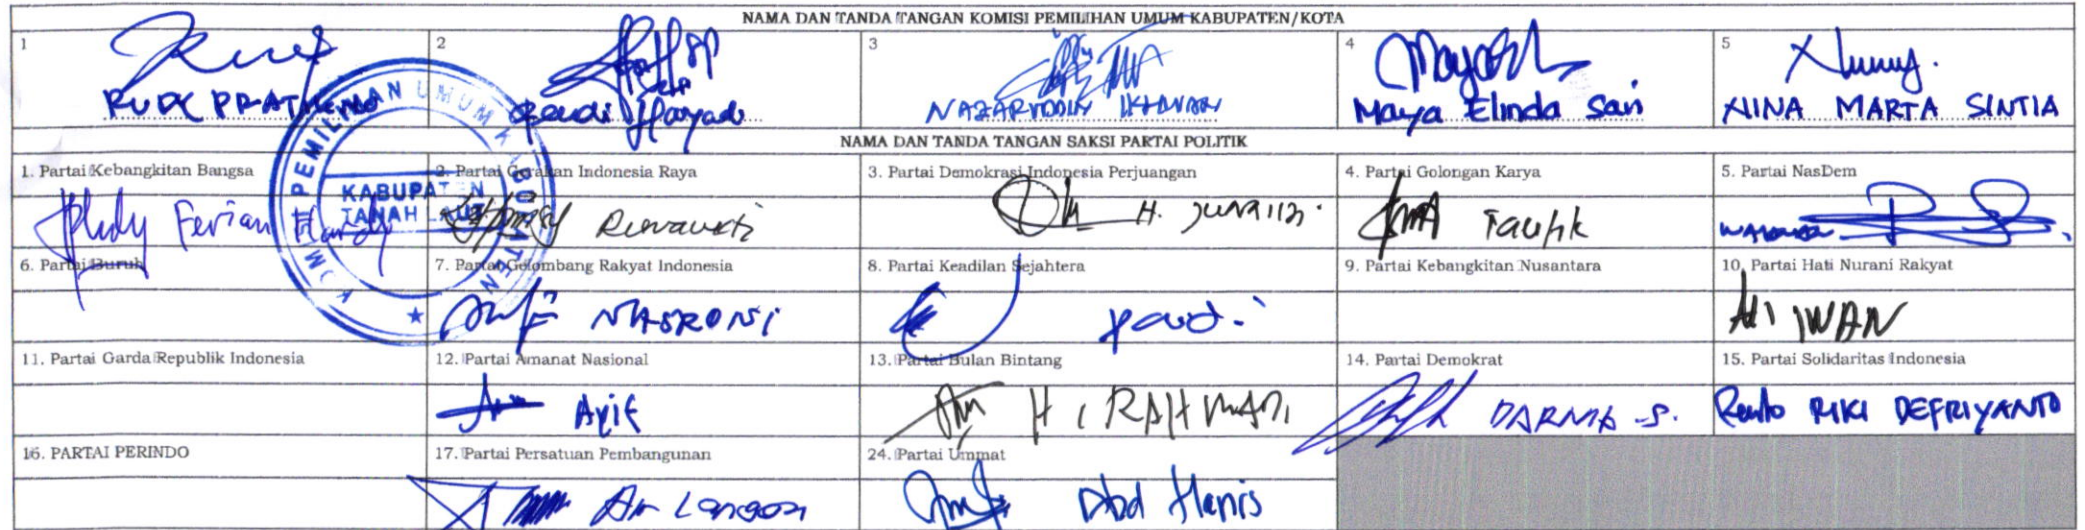 NAMA DAN TANDA TANGAN KOMISI PEMILIHAN UMUM KABUPATEN/KOTA
1 2 3 4 5
RUDI PRATIKNO Haryadi NAZARUDDIN Maya Elinda Sari NINA MARTA SINTIA
NAMA DAN TANDA TANGAN SAKSI PARTAI POLITIK
1. Partai Kebangkitan Bangsa 2. Partai Gerakan Indonesia Raya 3. Partai Demokrasi Indonesia Perjuangan 4. Partai Golongan Karya 5. Partai NasDem
Ferian Hardy H. JUNAIDI Taufik
6. Partai Buruh 7. Partai Gelombang Rakyat Indonesia 8. Partai Keadilan Sejahtera 9. Partai Kebangkitan Nusantara 10. Partai Hati Nurani Rakyat
MASRONI IWAN
11. Partai Garda Republik Indonesia 12. Partai Amanat Nasional 13. Partai Bulan Bintang 14. Partai Demokrat 15. Partai Solidaritas Indonesia
Arif H. RAHMADI DARMA S. RIKI DEFRIYANTO
16. PARTAI PERINDO 17. Partai Persatuan Pembangunan 24. Partai Ummat
Abd Hanis
KOMISI PEMILIHAN UMUM KABUPATEN
KABUPATEN
TANAH LAUT